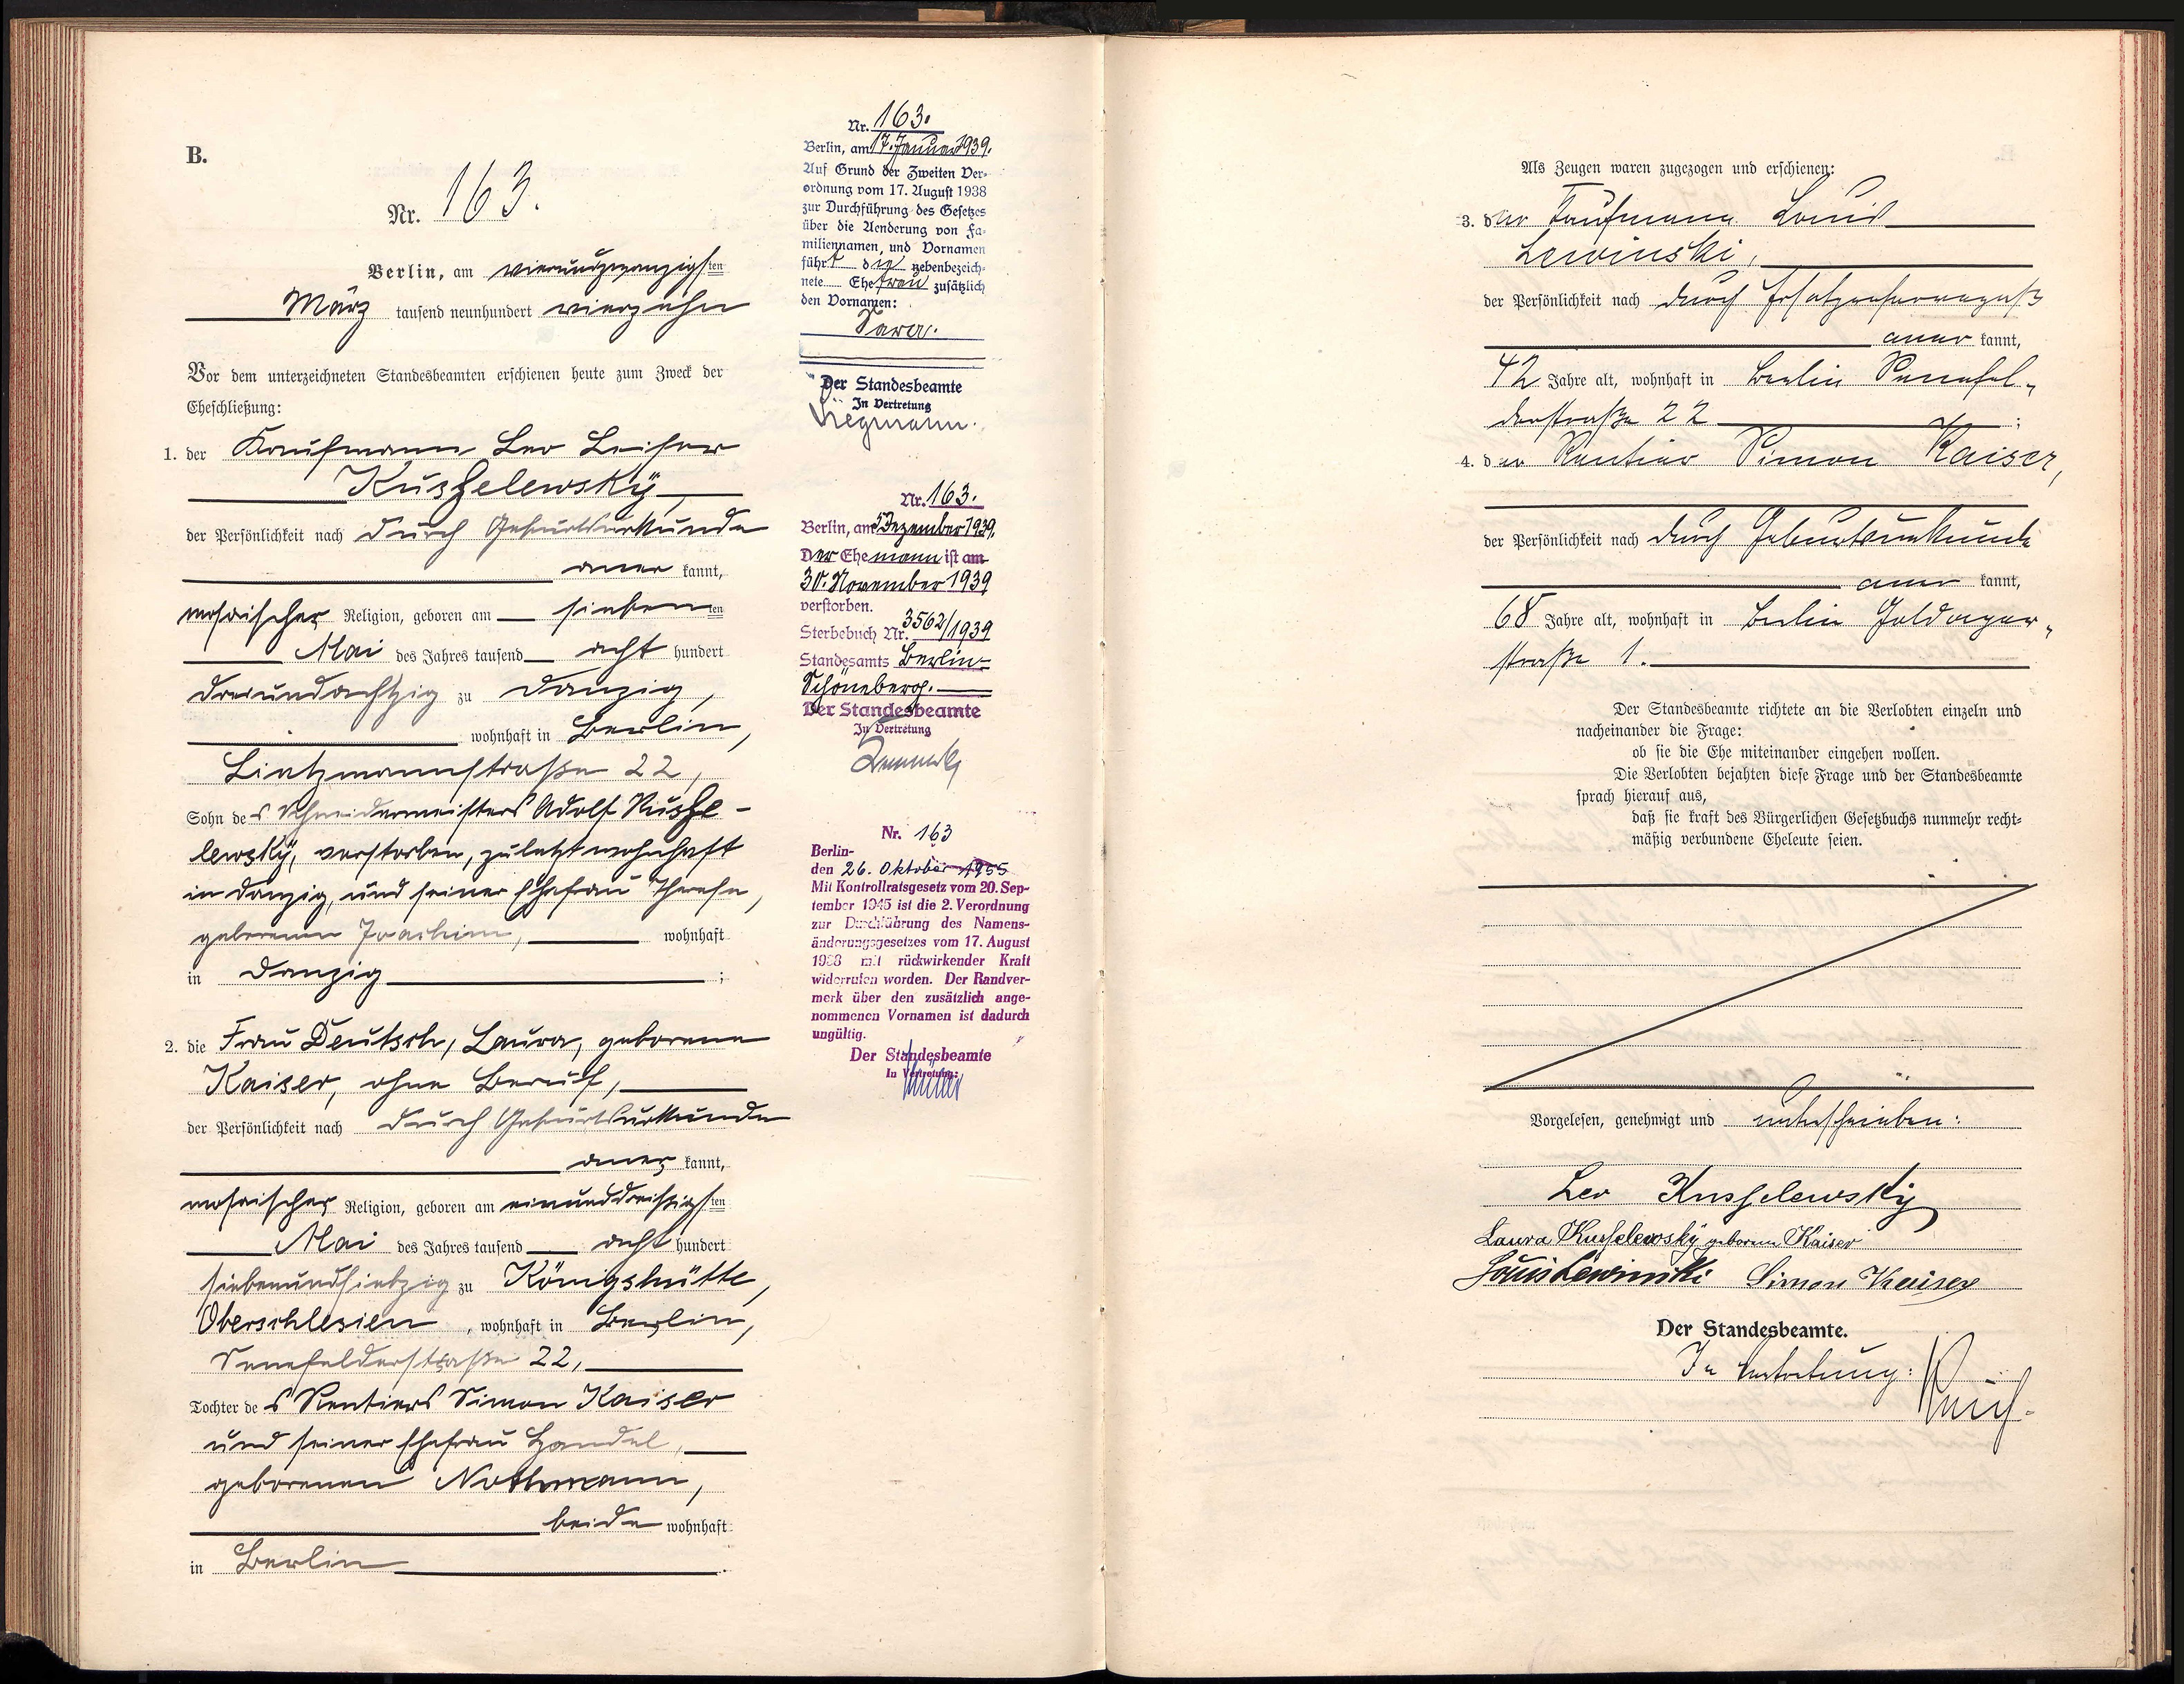 B.
Nr. 163.
Berlin, am vierundzwanzigsten
März tausend neunhundert vierzehn
Vor dem unterzeichneten Standesbeamten erschienen heute zum Zweck der
Eheschließung:
1. der Kaufmann Leo Leiser
Kusselewsky,
der Persönlichkeit nach durch Geburtsurkunde
aner kannt,
mosaischer Religion, geboren am siebenten
Mai des Jahres tausend acht hundert
dreiundachtzig zu Danzig,
wohnhaft in Berlin,
Lietzmannstraße 22,
Sohn des Schneidermeisters Adolf Kusse-
lewsky, verstorben, zuletzt wohnhaft
in Danzig, und seiner Ehefrau Therese,
geborenen Joachim, wohnhaft
in Danzig ;
2. die Frau Deutsch, Laura, geborene
Kaiser, ohne Beruf,
der Persönlichkeit nach durch Geburtsurkunde
aner kannt,
mosaischer Religion, geboren am einunddreißigsten
Mai des Jahres tausend acht hundert
siebenundsiebzig zu Königshütte,
Oberschlesien, wohnhaft in Berlin,
Senefelderstraße 22,
Tochter des Rentiers Simon Kaiser
und seiner Ehefrau Handel,
geborenen Nothmann,
beide wohnhaft
in Berlin .
Nr. 163.
Berlin, am 17. Januar 1939.
Auf Grund der Zweiten Ver-
ordnung vom 17. August 1938
zur Durchführung des Gesetzes
über die Aenderung von Fa-
miliennamen und Vornamen
führt die nebenbezeich-
nete Ehefrau zusätzlich
den Vornamen:
Sara.
Der Standesbeamte
In Vertretung
Nr. 163.
Berlin, am 5 Dezember 1939.
Der Ehemann ist am
30. November 1939
verstorben.
Sterbebuch Nr. 3562/1939
Standesamts Berlin-
Schöneberg.
Der Standesbeamte
In Vertretung
Nr. 163
Berlin-
den 26. Oktober 1955
Mit Kontrollratsgesetz vom 20. Sep-
tember 1945 ist die 2. Verordnung
zur Durchführung des Namens-
änderungsgesetzes vom 17. August
1938 mit rückwirkender Kraft
widerrufen worden. Der Randver-
merk über den zusätzlich ange-
nommenen Vornamen ist dadurch
ungültig.
Der Standesbeamte
In Vertretung:
Müller
Als Zeugen waren zugezogen und erschienen:
3. der Kaufmann Louis
Lewinski,
der Persönlichkeit nach durch
aner kannt,
42 Jahre alt, wohnhaft in Berlin Senefel-
derstraße 22 ;
4. der Rentier Simon Kaiser,
der Persönlichkeit nach durch Geburtsurkunde
aner kannt,
68 Jahre alt, wohnhaft in Berlin
straße 1.
Der Standesbeamte richtete an die Verlobten einzeln und
nacheinander die Frage:
ob sie die Ehe miteinander eingehen wollen.
Die Verlobten bejahten diese Frage und der Standesbeamte
sprach hierauf aus,
daß sie kraft des Bürgerlichen Gesetzbuchs nunmehr recht-
mäßig verbundene Eheleute seien.
Vorgelesen, genehmigt und unterschrieben:
Leo Kusselewsky
Laura Kusselewsky geborene Kaiser
Louis Lewinski Simon Kaiser
Der Standesbeamte.
In Vertretung: